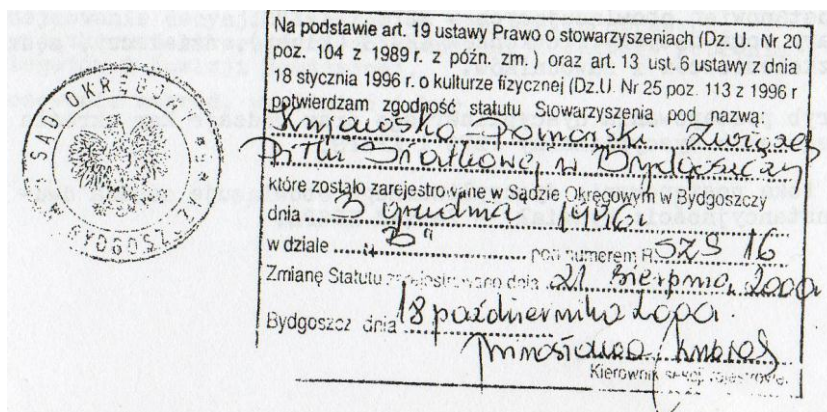 SĄD OKRĘGOWY
W BYDGOSZCZY
Na podstawie art. 19 ustawy Prawo o stowarzyszeniach (Dz. U. Nr 20
poz. 104 z 1989 r. z późn. zm.) oraz art. 13 ust. 6 ustawy z dnia
18 stycznia 1996 r. o kulturze fizycznej (Dz.U. Nr 25 poz. 113 z 1996 r
potwierdzam zgodność statutu Stowarzyszenia pod nazwą:
Kujawsko-Pomorski Związek
Piłki Siatkowej w Bydgoszczy
które zostało zarejestrowane w Sądzie Okręgowym w Bydgoszczy
dnia 3 grudnia 1996r
w dziale "B" pod numerem R. SZS 16
Zmianę Statutu zarejestrowano dnia 21 sierpnia 2000r
Bydgoszcz dnia 18 października 2000r.
Kierownik sekcji rejestrowej